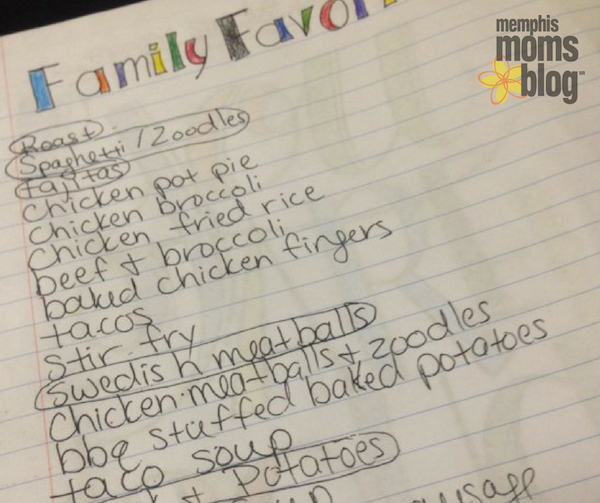 Family Favor
memphis
moms
blog
Roast
Spaghetti/Zoodles
fajitas
chicken pot pie
chicken broccoli
chicken fried rice
beef + broccoli
baked chicken fingers
tacos
stir fry
Swedish meatballs
chicken meatballs + zoodles
bbq stuffed baked potatoes
taco soup
+ potatoes